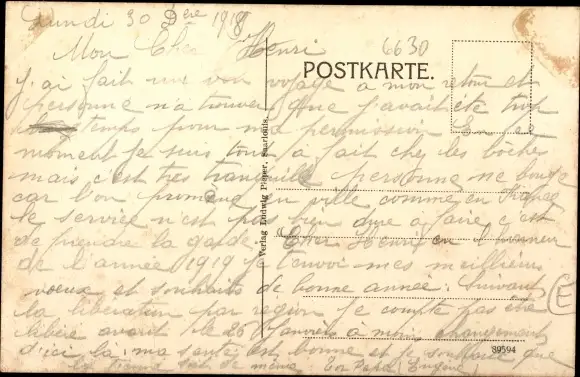 Lundi 30 Dere 1918
Mon Cher Henri
6630
POSTKARTE.
J'ai fait un bon voyage a mon retour et
personne n'a trouver que j'avait ete trop
temps pour ma permission En ce
moment je suis tout a fait chez les bôches
mais c'est tres tranquille personne ne bouge
car l'on promène en ville comme en France
le service n'est pas bien dure a faire c'est
de prendre la garde. Cher Henri en l'honneur
de l'année 1919 je t'envoi mes meilleurs
voeux et souhaits de bonne année: suivant
la libération par region je compte pas être
libéré avant le 26 Janvier a moins changement
d'ici là: ma santé est bonne et je souhaite que
la tienne soit de même
Verlag Ludwig Pieper, Saarlouis.
39594
E